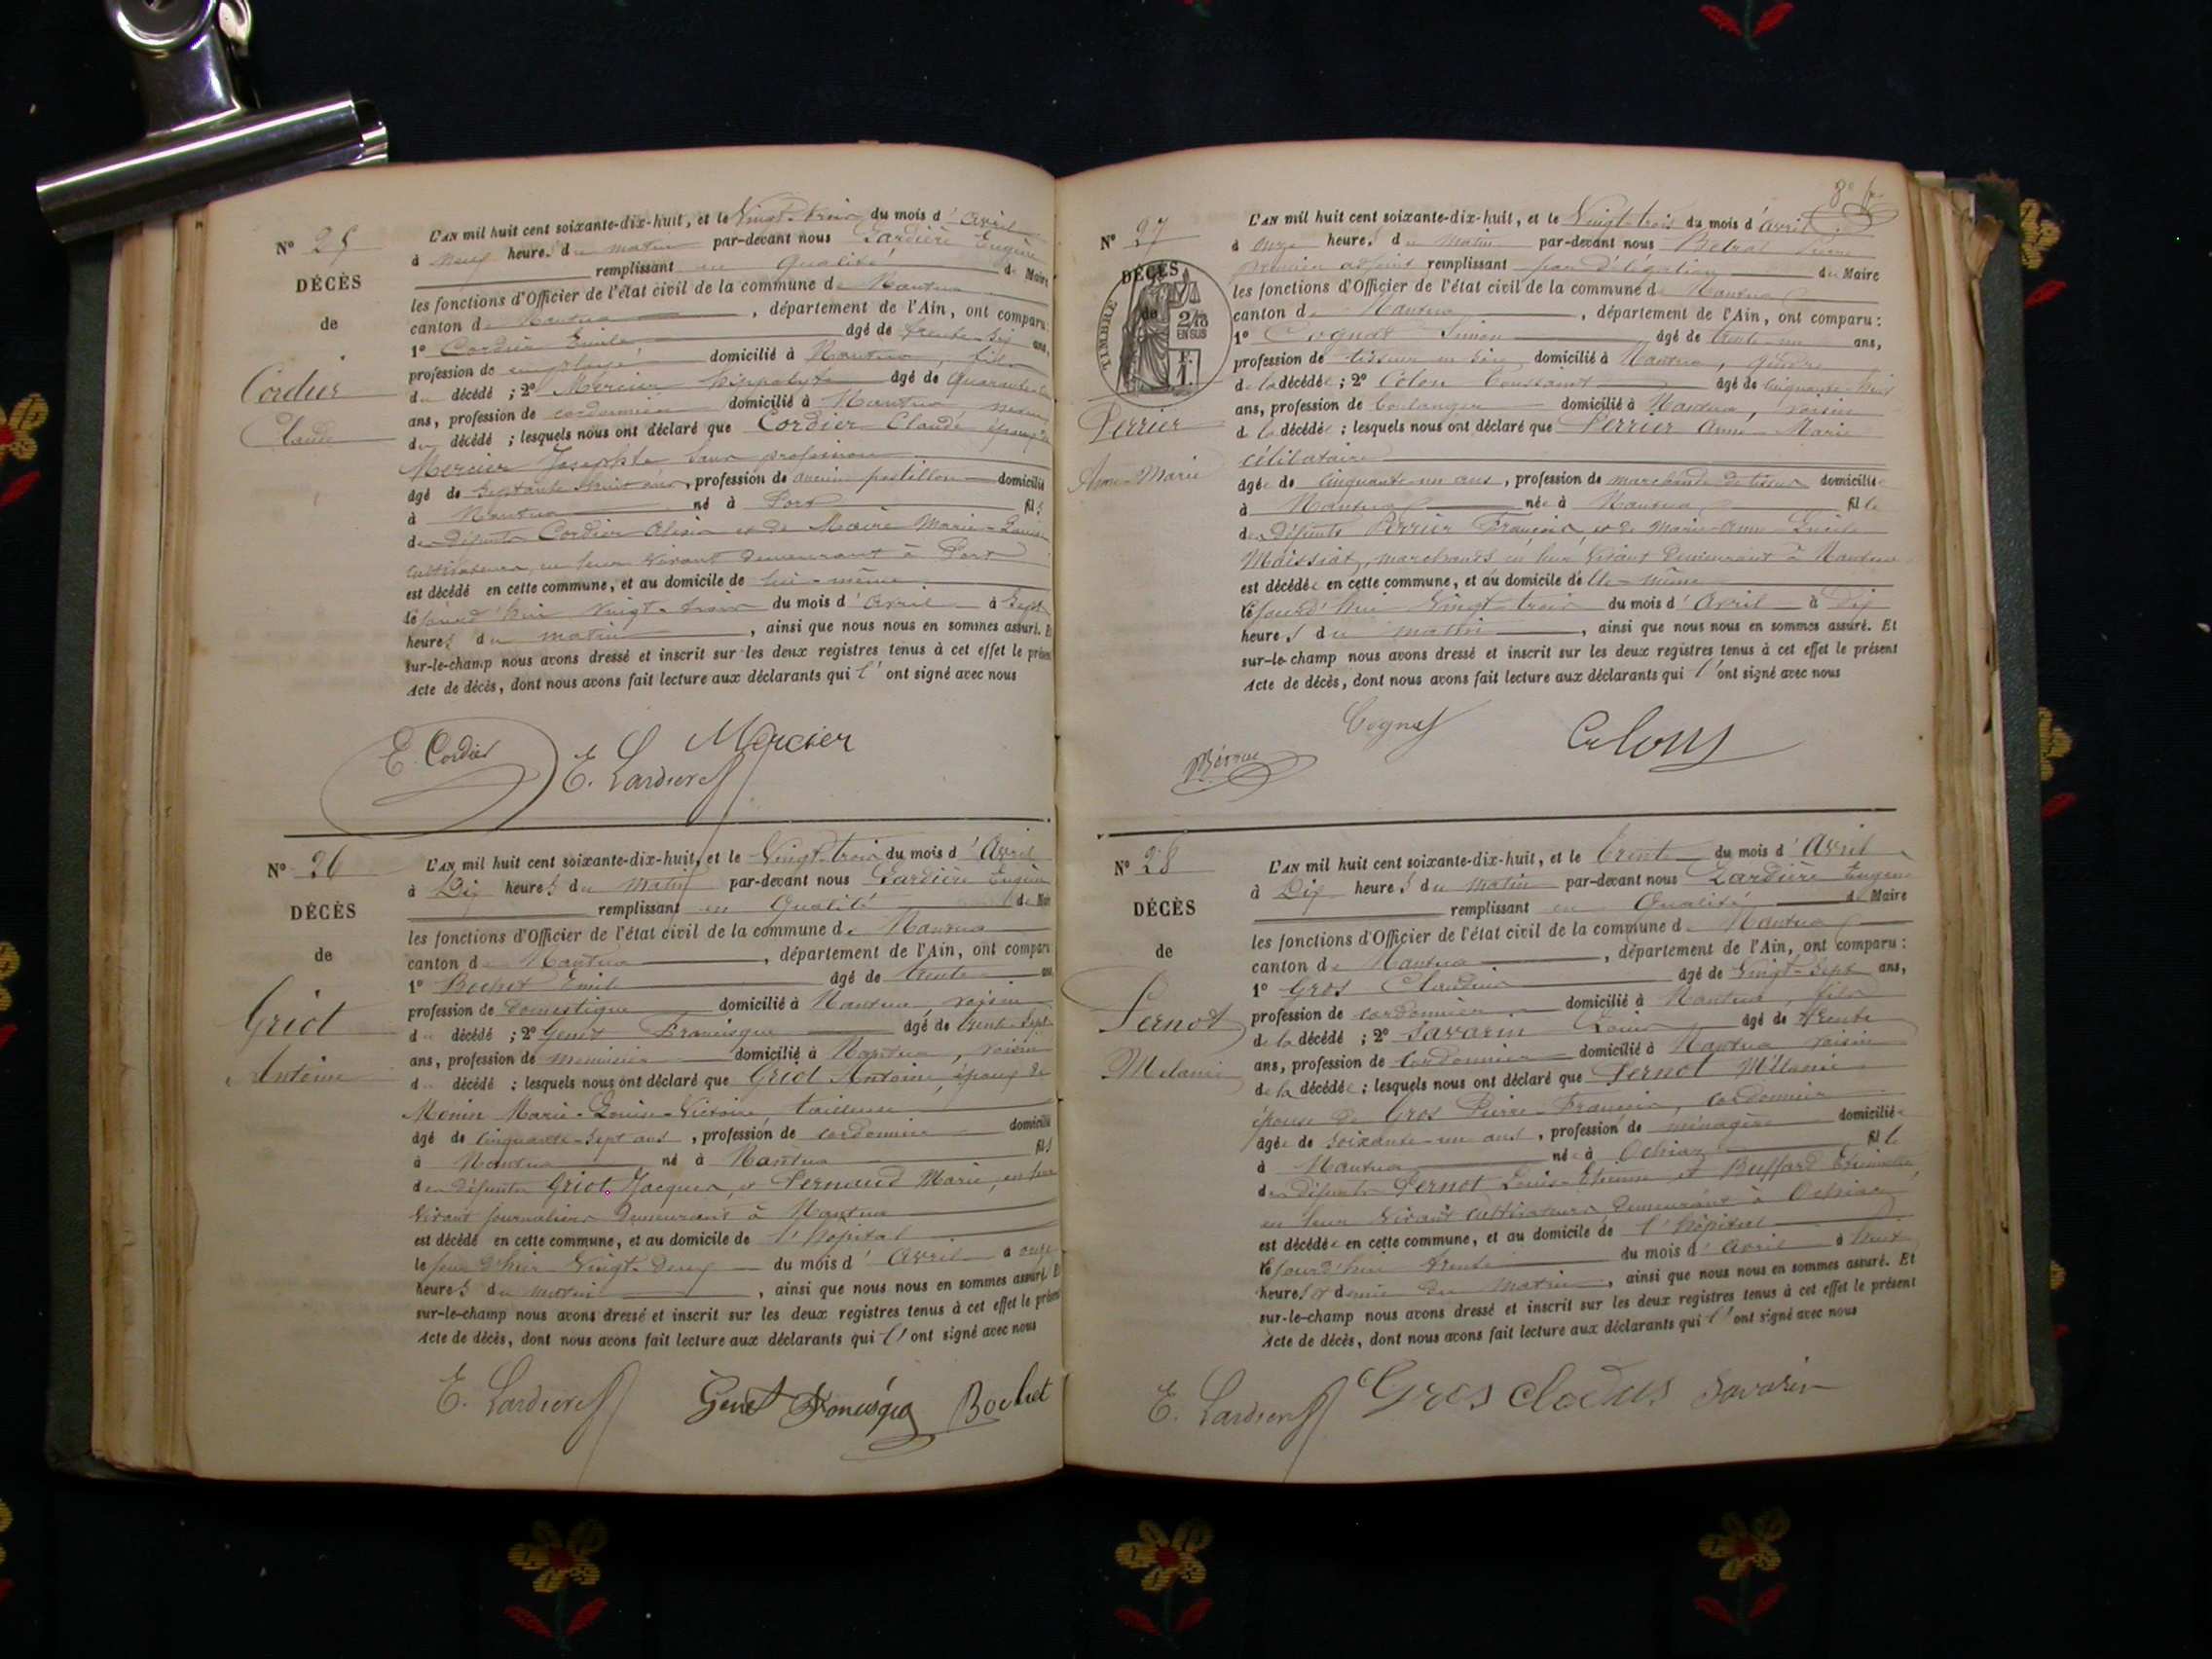 N° 25
DÉCÈS
de
Cordier
Claude
L'AN mil huit cent soixante-dix-huit, et le Vingt-trois du mois d'Avril
à neuf heures du matin par-devant nous Lardière Eugène
remplissant en qualité de Maire
les fonctions d'Officier de l'état civil de la commune de Nantua
canton de Nantua, département de l'Ain, ont comparu :
1° Cordier Emile âgé de trente-six ans,
profession de employé domicilié à Nantua, fils
du décédé ; 2° Mercier hippolyte âgé de quarante
ans, profession de cordonnier domicilié à Nantua neveu
du décédé ; lesquels nous ont déclaré que Cordier Claude époux de
Mercier Josephte sans profession
âgé de septante huit ans, profession de ancien postillon domicilié
à Nantua né à Port fils
de défunts Cordier Alexis et de Maire Marie-Louise
cultivateurs en leur vivant demeurant à Port
est décédé en cette commune, et au domicile de lui-même
le jourd'hui vingt-trois du mois d'Avril à sept
heures du matin, ainsi que nous nous en sommes assuré. Et
sur-le-champ nous avons dressé et inscrit sur les deux registres tenus à cet effet le présent
Acte de décès, dont nous avons fait lecture aux déclarants qui l'ont signé avec nous
E. Cordier E. Lardière Mercier
N° 26
DÉCÈS
de
Griot
Antoine
L'AN mil huit cent soixante-dix-huit, et le Vingt-trois du mois d'Avril
à Dix heures du matin par-devant nous Lardière Eugène
remplissant en qualité de Maire
les fonctions d'Officier de l'état civil de la commune de Nantua
canton de Nantua, département de l'Ain, ont comparu
1° Bochet Emile âgé de trente ans,
profession de domestique domicilié à Nantua, voisin
du décédé ; 2° Genet Francisque âgé de trente sept
ans, profession de menuisier domicilié à Nantua, voisin
du décédé ; lesquels nous ont déclaré que Griot Antoine, époux de
Monin Marie-Louise-Victoire, tailleuse
âgé de cinquante-sept ans, profession de cordonnier domicilié
à Nantua né à Nantua fils
de défunts Griot Jacques, et Pernaud Marie, en leur
vivant journaliers demeurant à Nantua
est décédé en cette commune, et au domicile de l'hôpital
le jour d'hier vingt-deux du mois d'Avril à onze
heures du matin, ainsi que nous nous en sommes assuré. Et
sur-le-champ nous avons dressé et inscrit sur les deux registres tenus à cet effet le présent
Acte de décès, dont nous avons fait lecture aux déclarants qui l'ont signé avec nous
E. Lardière Genet Francisque Bochet
N° 27
DÉCÈS
de
TIMBRE
EN SUS
Perrier
Anne-Marie
L'AN mil huit cent soixante-dix-huit, et le Vingt-trois du mois d'Avril
à onze heures du matin par-devant nous
premier adjoint remplissant par délégation du Maire
les fonctions d'Officier de l'état civil de la commune de Nantua
canton de Nantua, département de l'Ain, ont comparu :
1° Cognat Simon âgé de trente-un ans,
profession de tisseur en soie domicilié à Nantua,
de la décédée ; 2° Colon Toussaint âgé de cinquante-huit
ans, profession de boulanger domicilié à Nantua, voisin
de la décédée ; lesquels nous ont déclaré que Perrier Anne-Marie
célibataire
âgée de cinquante-un ans, profession de marchande de tissus domiciliée
à Nantua née à Nantua fille
de défunts Perrier François et de Marie-Anne
Maissiat, marchands en leur vivant demeurant à Nantua
est décédée en cette commune, et au domicile d'elle-même
le jourd'hui vingt-trois du mois d'Avril à dix
heures du matin, ainsi que nous nous en sommes assuré. Et
sur-le-champ nous avons dressé et inscrit sur les deux registres tenus à cet effet le présent
Acte de décès, dont nous avons fait lecture aux déclarants qui l'ont signé avec nous
Cognat Colon
N° 28
DÉCÈS
de
Pernot
Mélanie
L'AN mil huit cent soixante-dix-huit, et le trente du mois d'Avril
à Dix heures du matin par-devant nous Lardière Eugène
remplissant en qualité de Maire
les fonctions d'Officier de l'état civil de la commune de Nantua
canton de Nantua, département de l'Ain, ont comparu :
1° Gros Claudius âgé de vingt-sept ans,
profession de cordonnier domicilié à Nantua, fils
de la décédé ; 2° Savarin Louis âgé de trente
ans, profession de cordonnier domicilié à Nantua voisin
de la décédée ; lesquels nous ont déclaré que Pernot Mélanie
épouse de Gros Pierre-François, cordonnier
âgée de soixante-un ans, profession de ménagère domiciliée
à Nantua née à Ochiaz fille
de défunts Pernot Louis-Etienne et Buffard Etiennette,
en leur vivant cultivateurs demeurant à Ochiaz
est décédée en cette commune, et au domicile de l'hôpital
le jourd'hui trente du mois d'Avril à huit
heures et demie du matin, ainsi que nous nous en sommes assuré. Et
sur-le-champ nous avons dressé et inscrit sur les deux registres tenus à cet effet le présent
Acte de décès, dont nous avons fait lecture aux déclarants qui l'ont signé avec nous
E. Lardière Gros clodius Savarin